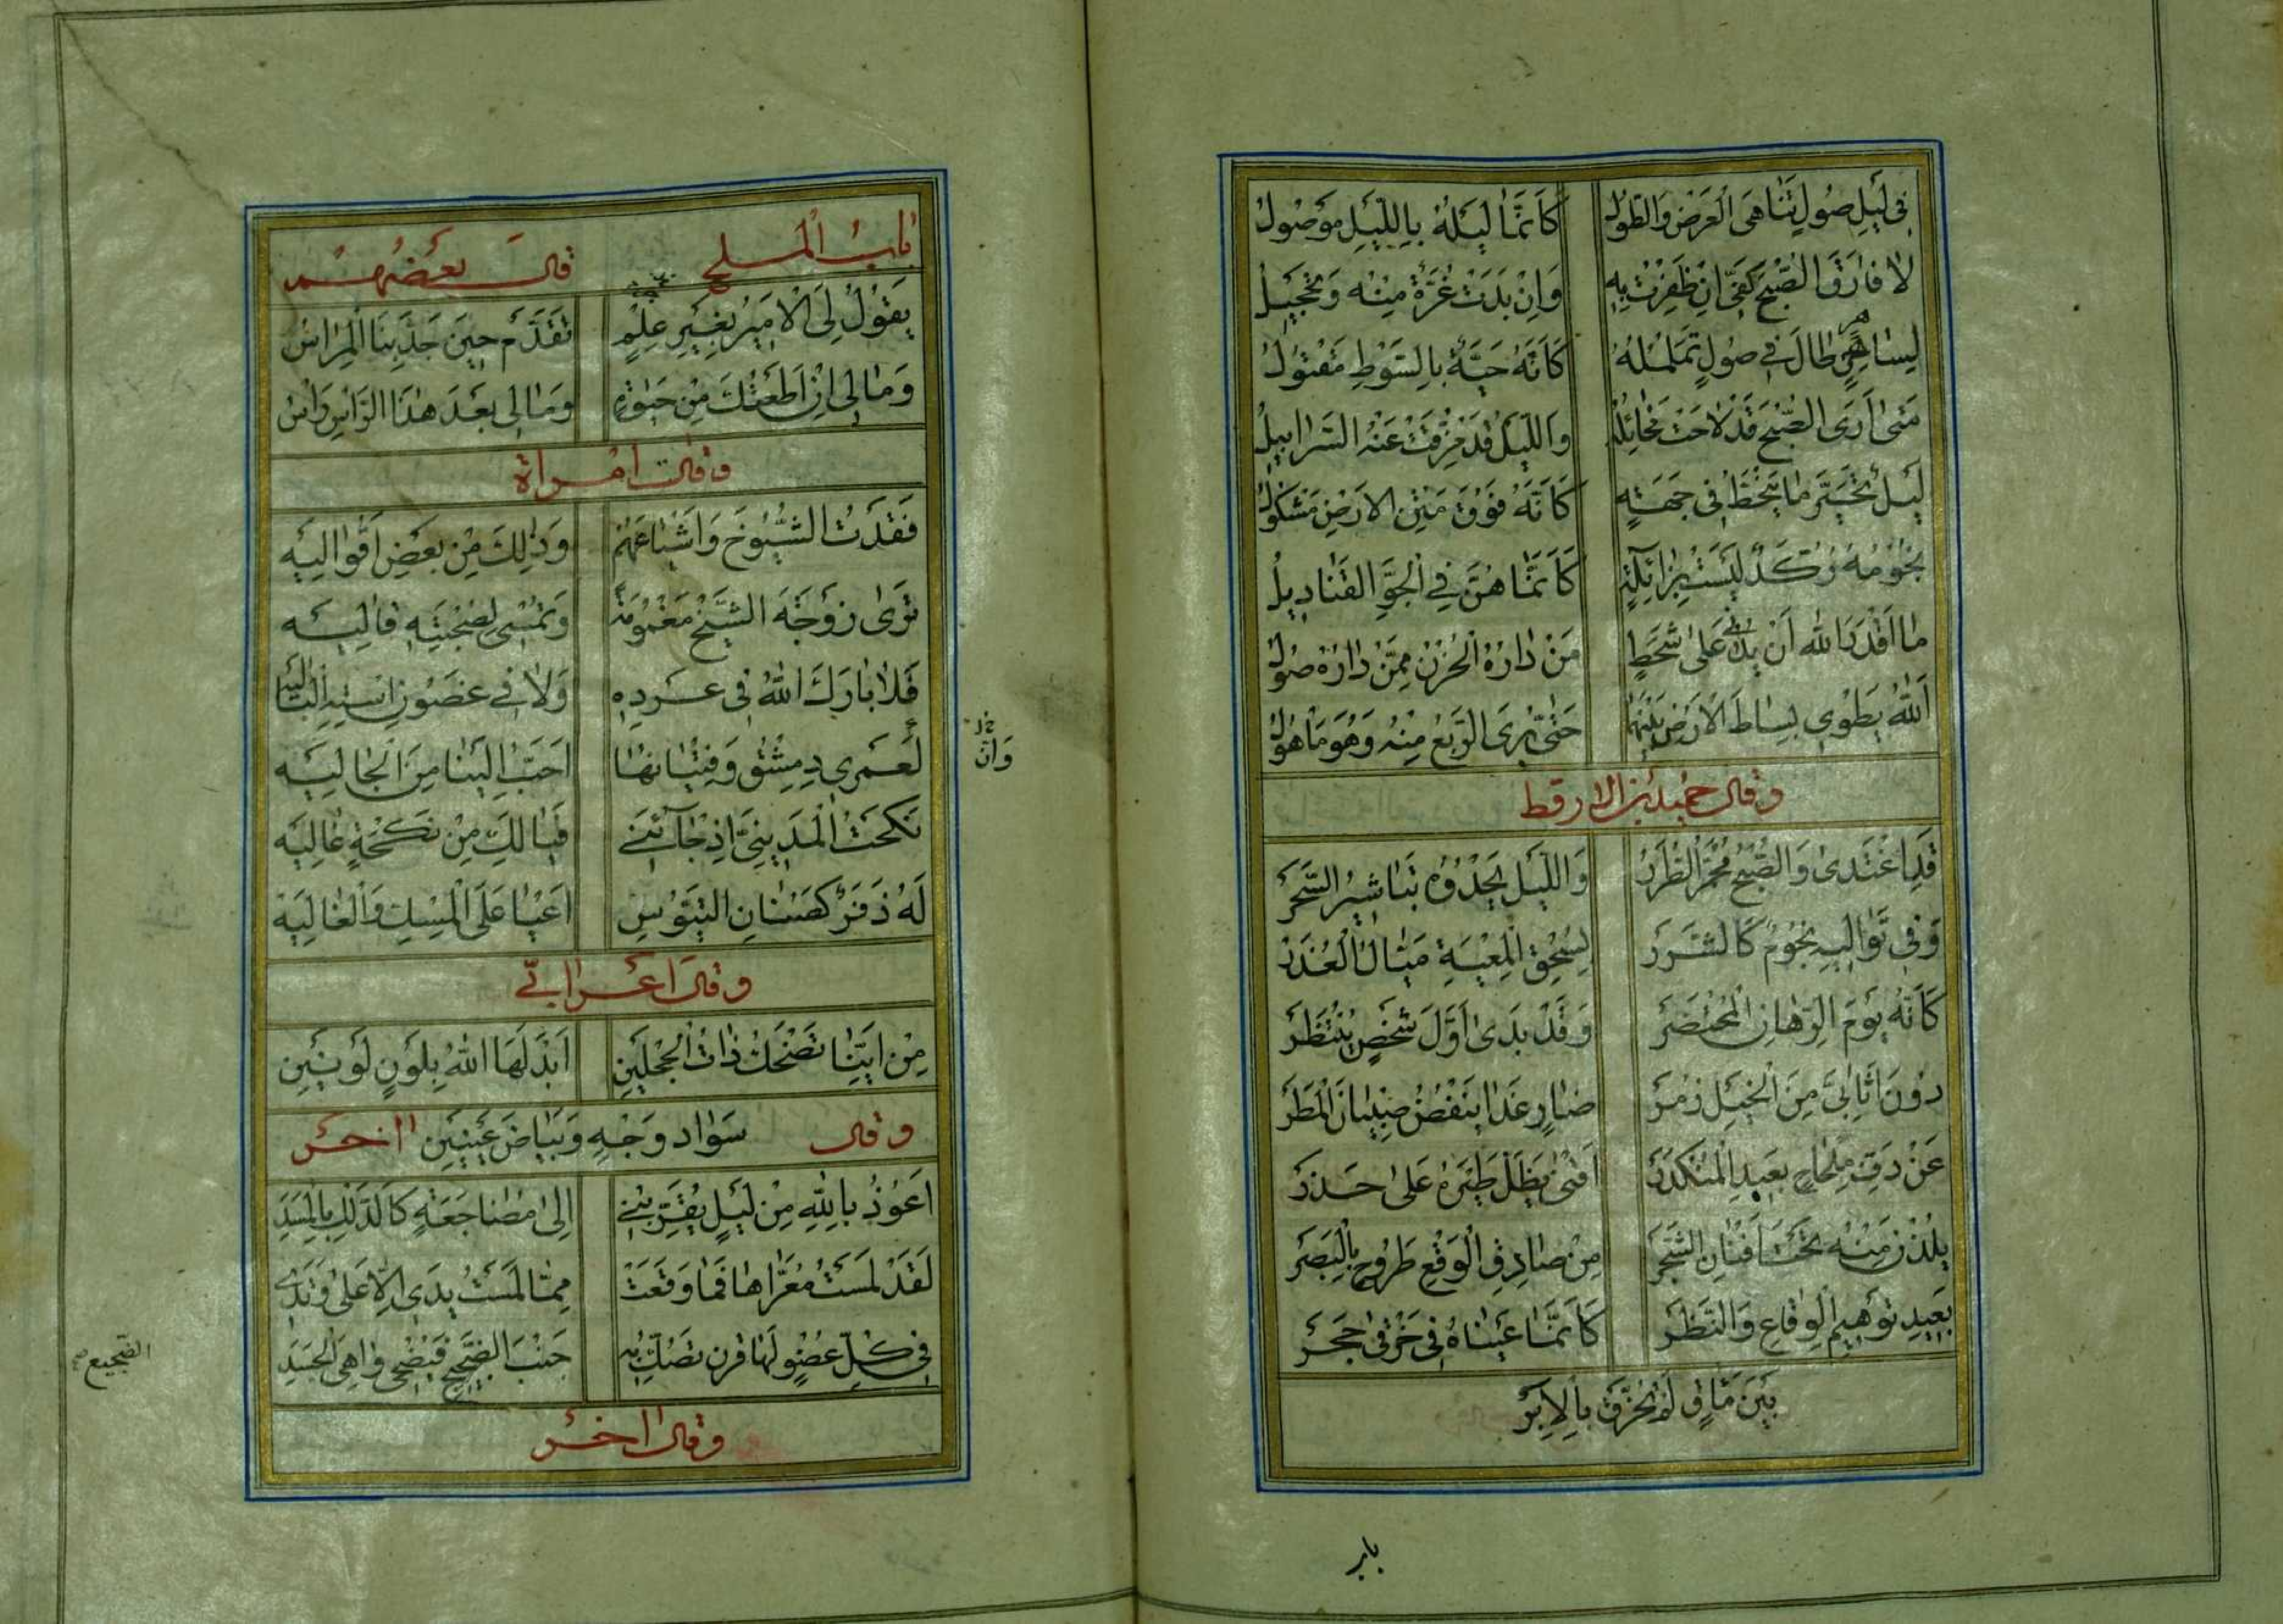 فِي لَيْلِ صُولٍ تَنَاهَى الْعَرْضُ وَالطُّولُ كَأَنَّمَا لَيْلُهُ بِاللَّيْلِ مَوْصُولُ
لَا فَارَقَ الصُّبْحُ كَفِّي إِنْ ظَفِرْتُ بِهِ وَإِنْ بَدَتْ غُرَّةٌ مِنْهُ وَتَحْجِيلُ
لِسَاهِرٍ طَالَ فِي صُولٍ تَمَلْمُلُهُ كَأَنَّهُ حَيَّةٌ بِالسَّوْطِ مَقْتُولُ
مَتَى أَرَى الصُّبْحَ قَدْ لَاحَتْ مَخَائِلُهُ وَاللَّيْلَ قَدْ مُزِّقَتْ عَنْهُ السَّرَابِيلُ
لَيْلٌ تَحَيَّرَ مَا يَنْحَطُّ فِي جِهَةٍ كَأَنَّهُ فَوْقَ مَتْنِ الْأَرْضِ مَشْكُولُ
نُجُومُهُ رُكَّدٌ لَيْسَتْ بِزَائِلَةٍ كَأَنَّمَا هُنَّ فِي الْجَوِّ الْقَنَادِيلُ
مَا أَقْدَرَ اللهَ أَنْ يُدْنِي عَلَى شَحَطٍ مَنْ دَارُهُ الْحَزْنُ مِمَّنْ دَارُهُ صُولُ
اَللهُ يَطْوِي بِسَاطَ الْأَرْضِ بَيْنَهُمَا حَتَّى يُرَى الرَّبْعُ مِنْهُ وَهُوَ مَأْهُولُ
وقال حميد بن الارقط
قَدْ أَغْتَدِى وَالصُّبْحُ مُحْمَرُّ الطُّرَرْ وَاللَّيْلُ يَحْدُوهُ تَبَاشِيرُ السَّحَرْ
وَفِي تَوَالِيهِ نُجُومٌ كَالشَّرَرْ بِسُحُقِ الْمَيْعَةِ مَيَّالِ الْعُذَرْ
كَأَنَّهُ يَوْمَ الرِّهَانِ الْمُحْتَضَرْ وَقَدْ بَدَى أَوَّلَ شَخْصٍ يُنْتَظَرْ
دُونَ أَثَابِيَّ مِنَ الْخَيْلِ زُمَرْ ضَارٍ غَدَا يَنْفُضُ صِئْبَانَ الْمَطَرْ
عَنْ زِفِّ مِلْحَاحٍ بَعِيدِ الْمُنْكَدَرْ أَقْنَى يَظَلُّ طَيْرُهُ عَلَى حَذَرْ
يَلُذْنَ مِنْهُ تَحْتَ أَفْنَانِ الشَّجَرْ مِنْ صَادِقِ الْوَقْعِ طَرُوحٍ بِالْبَصَرْ
بَعِيدِ تَوْهِيمِ الْوِقَاعِ وَالنَّظَرْ كَأَنَّمَا عَيْنَاهُ فِي حَرْفَيْ حَجَرْ
بَيْنَ مَآقٍ لَمْ تُخَرَّقْ بِالْإِبَرْ
باب
بَابُ الْمُلَحِ قال بعضهم
يَقُولُ لِيَ الْأَمِيرُ بِغَيْرِ عِلْمٍ تَقَدَّمْ حِينَ جَدَّ بِنَا الْمِرَاسُ
وَمَا لِي إِنْ أَطَعْتُكَ مِنْ حَيٰوةٍ وَمَا لِي بَعْدَ هٰذَا الرَّأْسِ رَأْسُ
وقالت امراة
فَقَدْتُ الشُّيُوخَ وَأَشْيَاعَهُمْ وَذٰلِكَ مِنْ بَعْضِ أَقْوَالِيَهْ
تَرَى زَوْجَةَ الشَّيْخِ مَغْمُومَةً وَتُمْسِي لِصُحْبَتِهِ قَالِيَهْ
فَلَا بَارَكَ اللهُ فِي عَرْدِهِ وَلَا فِي غُضُونِ اسْتِهِ الْبَالِيَهْ
لَعَمْرِي دِمِشْقُ وَفِتْيَانُهَا أَحَبُّ إِلَيْنَا مِنَ الْجَالِيَهْ
خ ل وَاِنَّ
نَكَحْتُ الْمَدِينِيَّ إِذْ جَآئَنِي فَيَا لَكِ مِنْ نَكْحَةٍ غَالِيَهْ
لَهُ ذَفَرٌ كَصُنَانِ التُّيُوسِ أَعْيَا عَلَى الْمِسْكِ وَالْغَالِيَهْ
وقال اعرابي
مِنْ أَيِّنَا تَضْحَكُ ذَاتُ الْحِجْلَيْنِ أَبْدَلَهَا اللهُ بِلَوْنٍ لَوْنَيْنِ
وقال سَوَادَ وَجْهٍ وَبَيَاضَ عَيْنَيْنِ اخر
أَعُوذُ بِاللهِ مِنْ لَيْلٍ يُقَرِّبُنِي إِلَى مُضَاجَعَةٍ كَالدَّلْكِ بِالْمَسَدِ
لَقَدْ لَمَسْتُ مُعَرَّاهَا فَمَا وَقَعَتْ مِمَّا لَمَسْتُ يَدِي إِلَّا عَلَى وَتَدِ
فِي كُلِّ عُضْوٍ لَهَا قَرْنٌ تَصُكُّ بِهِ جَنْبَ الضَّجِيعِ فَيُضْحِي وَاهِيَ الْجَسَدِ
الضجيع صح
وقال اخر